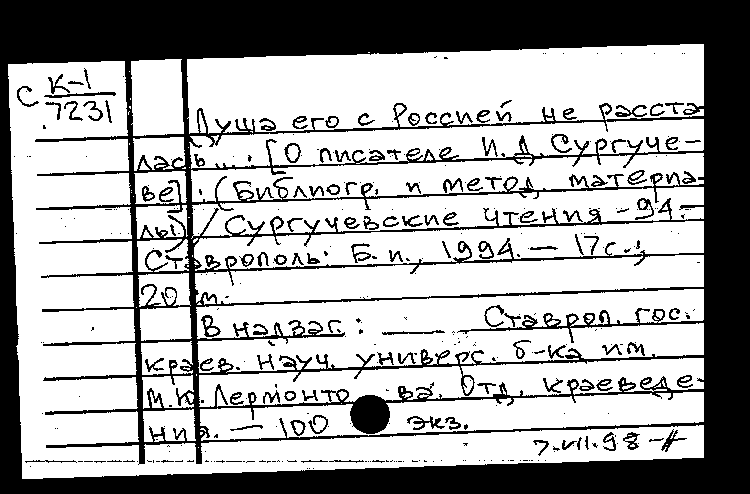 С К-1
7231
Душа его с Россией не расста-
лась...: [О писателе И.Д. Сургуче-
ве]: (Библиогр. и метод. материа-
лы) / Сургучевские чтения -94.-
Ставрополь: Б.и., 1994. — 17с.;
20 см.
В надзаг.: Ставроп. гос.
краев. науч. универс. б-ка им.
М.Ю. Лермонтова. Отд. краеведе-
ния. — 100 экз.
7.VII.98